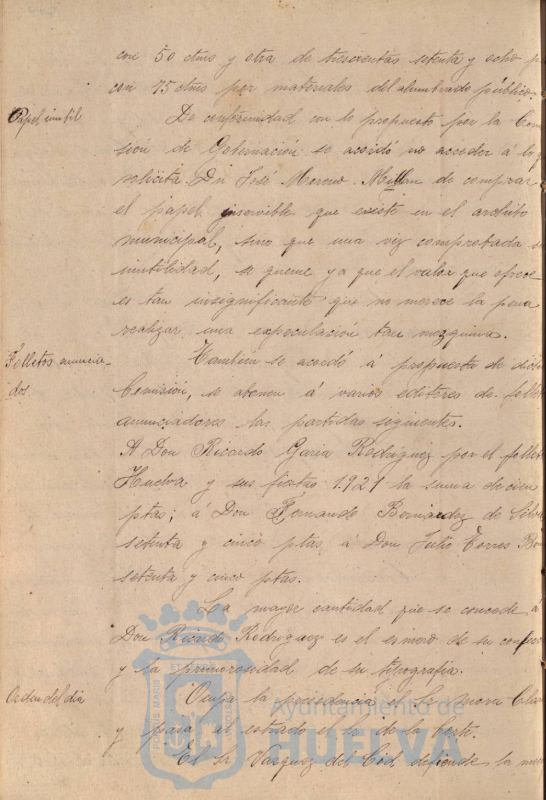 con 50 ctms y otra de trescientas setenta y ocho p
con 75 ctms por materiales del alumbrado público.
Papel inutil
De conformidad con lo propuesto por la Comi
sión de Gobernación se acordó no acceder á lo q
solicita Don José Moreno Millan de comprar
el papel inservible que existe en el archivo
municipal, sino que una vez comprobada s
inutilidad, se queme ya que el valor que ofrece
es tan insignificante que no merece la pena
realizar una especulación tan mezquina.
Folletos anuncia-
dos
También se acordó á propuesta de dicha
Comisión, se abonen á varios editores de follet
anunciadores las partidas siguientes.
A Don Ricardo Garia Rodriguez por el follet
Huelva y sus fiestas 1.921 la suma de cien
ptas; á Don Fernando Bermudez de
setenta y cinco ptas á Don Julio Torres
setenta y cinco ptas.
La mayor cantidad que se concede á
Don Ricardo Rodriguez es el esmero de su confec
y la primorosidad de su tipografia.
Orden del dia
Ocupa la presidencia el Sr. Mora Cla
y pasa al estrado el Sr. de la Corte.
El Sr. Vazquez del Cid, defiende la
Ayuntamiento de
HUELVA